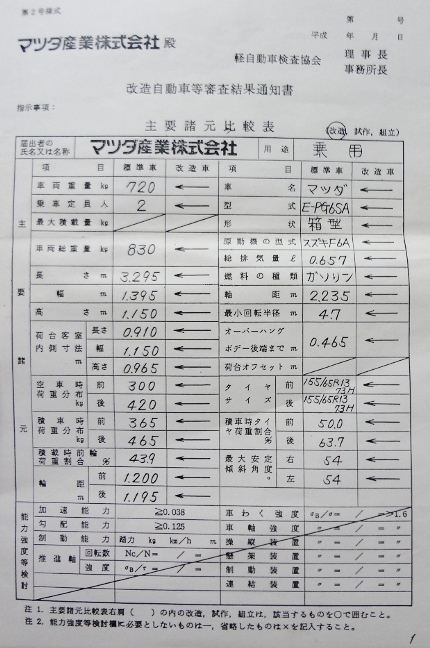 第2号様式
第　　　号
平成　年　月　日
マツダ産業株式会社 殿
軽自動車検査協会 理事長
事務所長
改造自動車等審査結果通知書
指示事項：
主要諸元比較表
(改造, 試作, 組立)
届出者の氏名又は名称 マツダ産業株式会社 用途 乗用
項目 標準車 改造車 項目 標準車 改造車
主要諸元
車両重量 kg 720 ← 車名 マツダ ←
乗車定員 人 2 ← 型式 E-PG6SA ←
最大積載量 kg 形状 箱型 ←
車両総重量 kg 830 ← 原動機の型式 スズキF6A ←
総排気量 ℓ 0.657 ←
長さ m 3.295 ← 燃料の種類 ガソリン ←
幅 m 1.395 ← 軸距 m 2.235 ←
高さ m 1.150 ← 最小回転半径 m 4.7 ←
荷台客室内側寸法 m 長さ 0.910 ← オーバーハング
幅 1.150 ← ボデー後端まで m 0.465 ←
高さ 0.965 ← 荷台オフセット m
空車時荷重分布 kg 前 300 ← タイヤサイズ 前 155/65R13 73H ←
後 420 ← 後 155/65R13 73H ←
積車時荷重分布 kg 前 365 ← 積車時タイヤ荷重割合 % 前 50.0 ←
後 465 ← 後 63.7 ←
積載時前輪荷重割合 % 43.9 ← 最大安定傾斜角度 ° 右 54 ←
輪距 m 前 1.200 ← 左 54 ←
後 1.195 ←
能力強度等検討
加速能力 ≧0.038 車わく強度 σB/σ= / =>1.6
勾配能力 ≧0.125 車軸強度 〃 = / = 〃
制動能力 踏力 kg km/h m 操縦装置 〃 = / = 〃
推進軸 回転数 Nc/N= / = 懸架装置 〃 = / = 〃
強度 σB/τ= / = 制動装置 〃 = / = 〃
連結装置 〃 = / = 〃
注 1. 主要諸元比較表右肩（　）の内の改造, 試作, 組立は, 該当するものを○で囲むこと。
注 2. 能力強度等検討欄に必要としないものは一, 省略したものは×を記入すること。
1